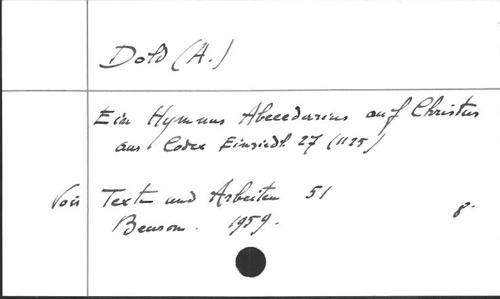 Dold (A.)
Ein Hymnus Abecedarius auf Christus
aus Codex Einsiedl. 27 (1125)
Voir Texte und Arbeiten 51
Beuron. 1959. 8.